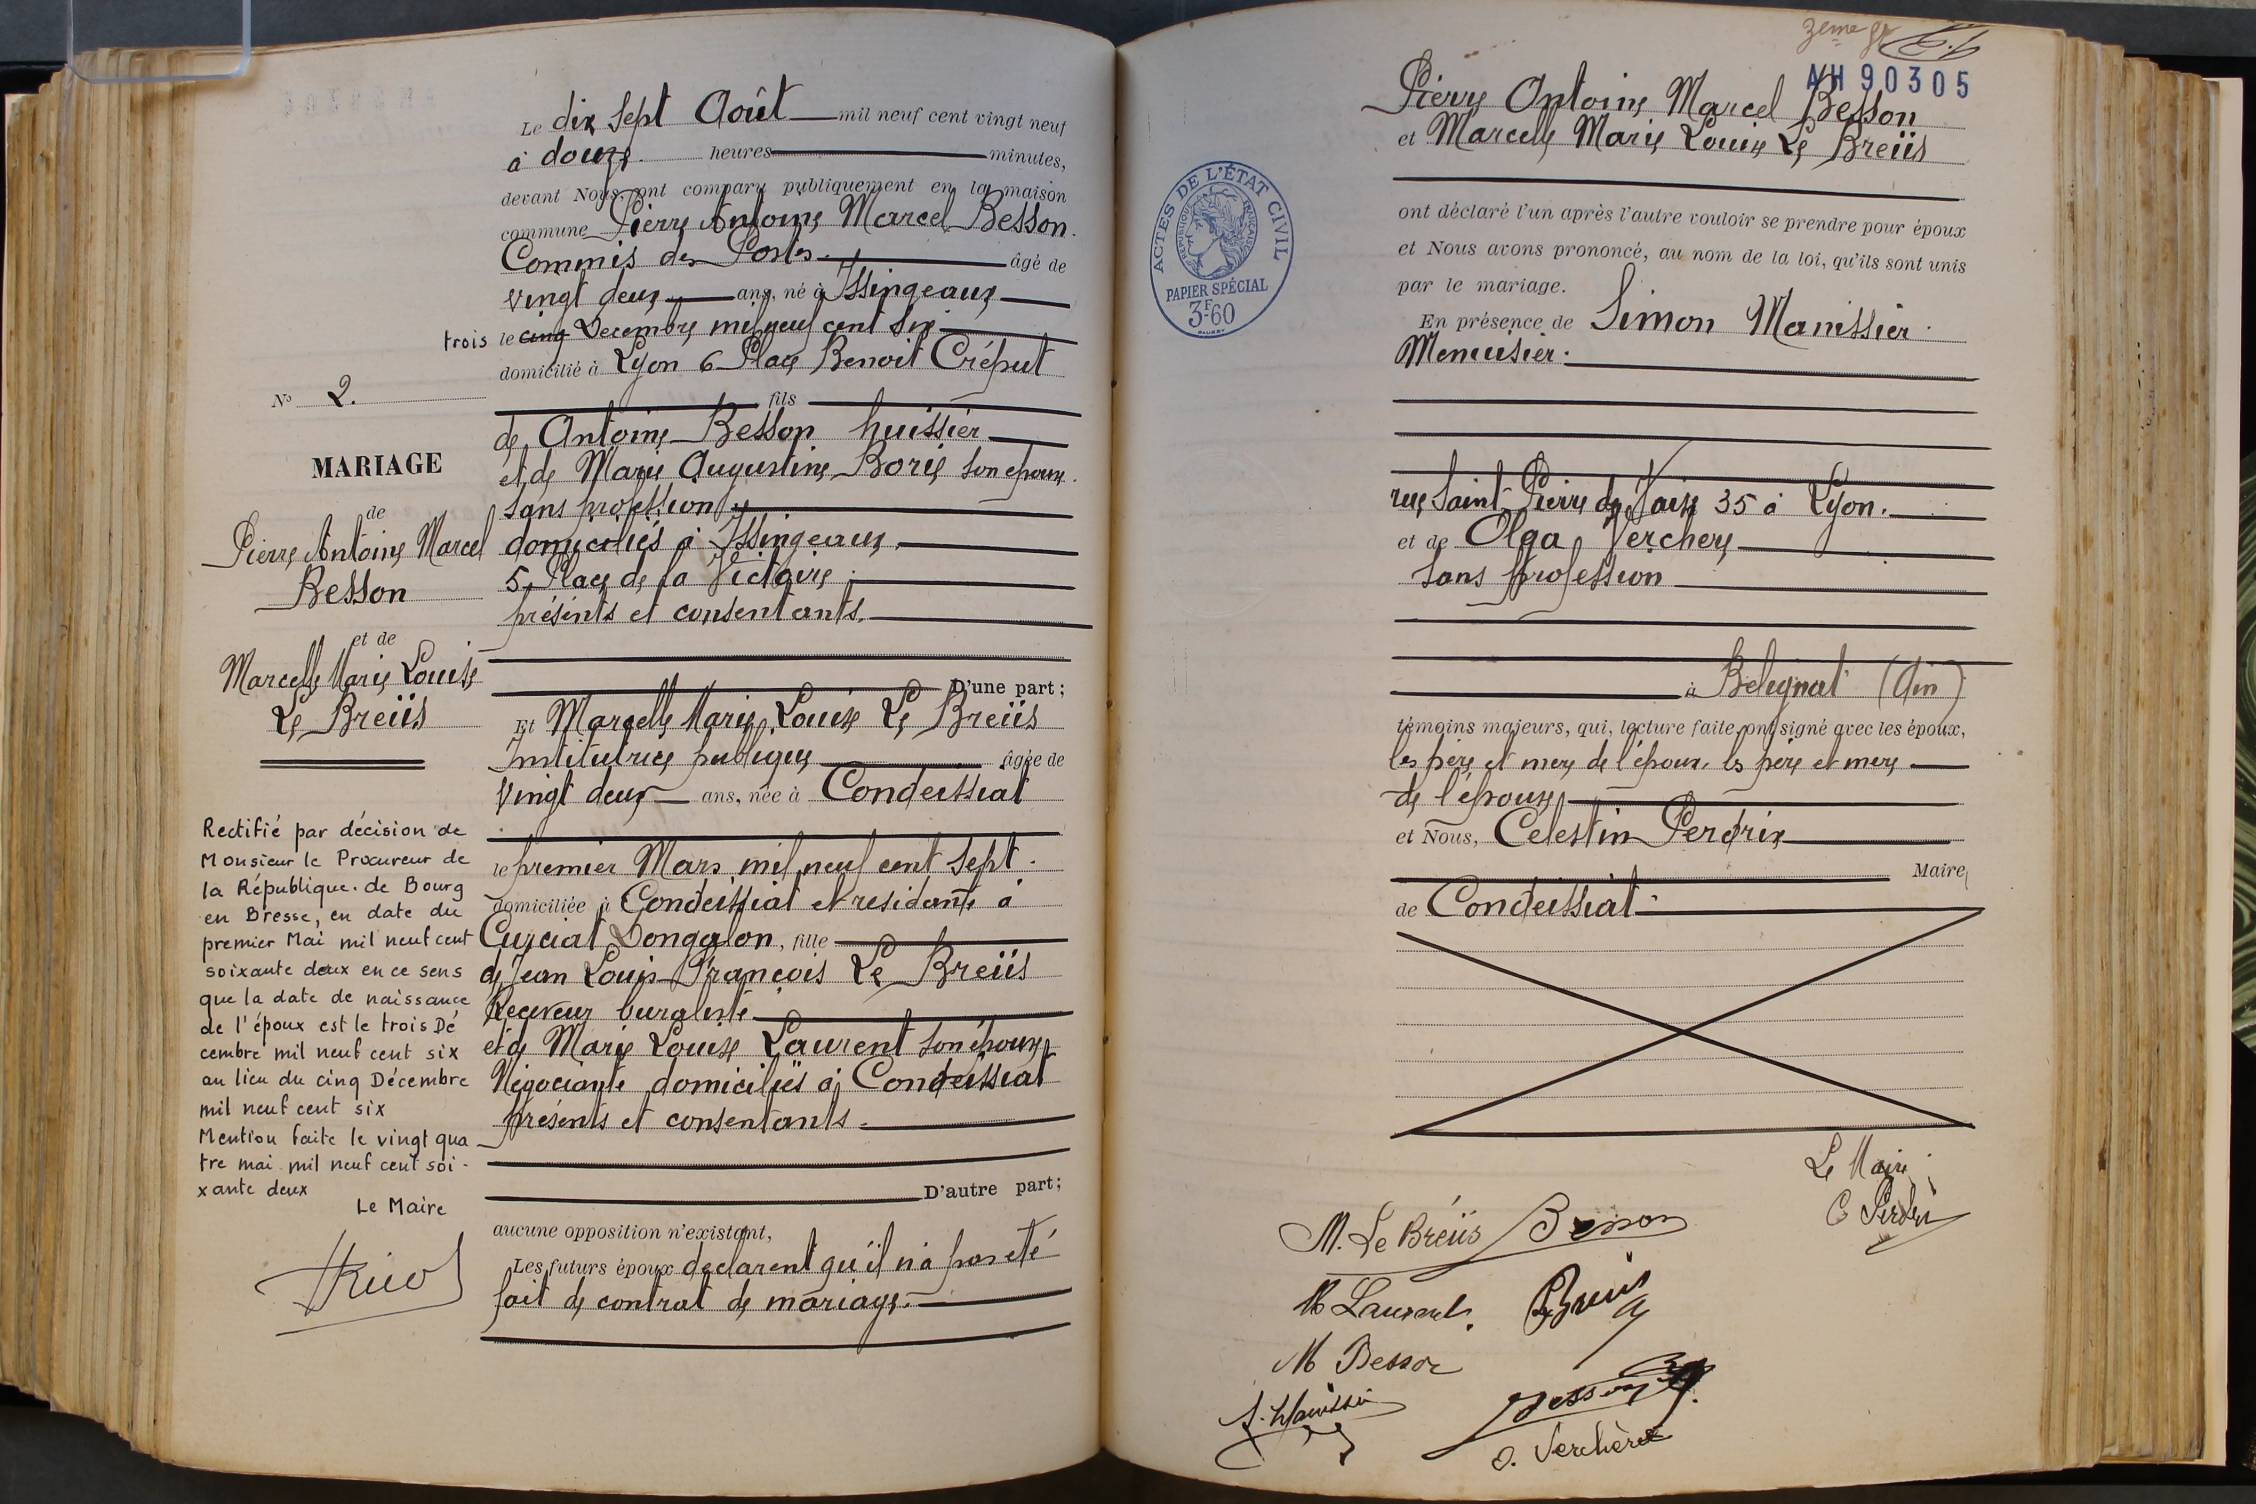 Le dix sept Août mil neuf cent vingt neuf
à douze heures minutes,
devant Nous ont comparu publiquement en la maison
commune Pierre Antoine Marcel Besson.
Commis des Postes. âgé de
vingt deux ans, né à Yssingeaux
trois le cinq Decembre mil neuf cent six
domicilié à Lyon 6 Place Benoit Créput
fils
de Antoine Besson huissier
et de Marie Augustine Borie son epouse.
sans profession
domiciliés à Yssingeaux.
5, Place de la Victoire
présents et consentants.
D'une part;
Et Marcelle Marie Louise Le Breüs
Institutrice publique âgée de
vingt deux ans, née à Condeissiat
le premier Mars mil neuf cent sept.
domiciliée à Condeissiat et residante à
Cuzciat Dongalon, fille
de Jean Louis François Le Breüs
Receveur buraliste
et de Marie Louise Laurent son épouse
Négociante domiciliés à Condeissiat
présents et consentants.
D'autre part;
aucune opposition n'existant,
Les futurs époux declarent qu'il n'a pas eté
fait de contrat de mariage.
No 2.
MARIAGE
de
Pierre Antoine Marcel
Besson
et de
Marcelle Marie Louise
Le Breüs
Rectifié par décision de
Monsieur le Procureur de
la République de Bourg
en Bresse, en date du
premier Mai mil neuf cent
soixante deux en ce sens
que la date de naissance
de l'époux est le trois Dé
cembre mil neuf cent six
au lieu du cinq Décembre
mil neuf cent six
Mention faite le vingt qua
tre mai mil neuf cent soi-
xante deux
Le Maire
3eme
AH 90305
Pierre Antoine Marcel Besson
et Marcelle Marie Louise Le Breüs
ACTES DE L'ÉTAT CIVIL
RÉPUBLIQUE FRANÇAISE
PAPIER SPÉCIAL
3F60
ont déclaré l'un après l'autre vouloir se prendre pour époux
et Nous avons prononcé, au nom de la loi, qu'ils sont unis
par le mariage.
En présence de Simon Manissier.
Menuisier.
rue Saint Pierre de Vaise 35 à Lyon.
et de Olga Verchere
sans profession
à Belignat (Ain)
témoins majeurs, qui, lecture faite, ont signé avec les époux,
les père et mere de l'époux, les père et mere
de l'épouse
et Nous, Celestin Perdrix
Maire
de Condeissiat
Le Maire
C Perdrix
M. Le Breüs Besson
M Laurent. Le Breüs
M Besson
S. Manissier
Besson
O. Verchère